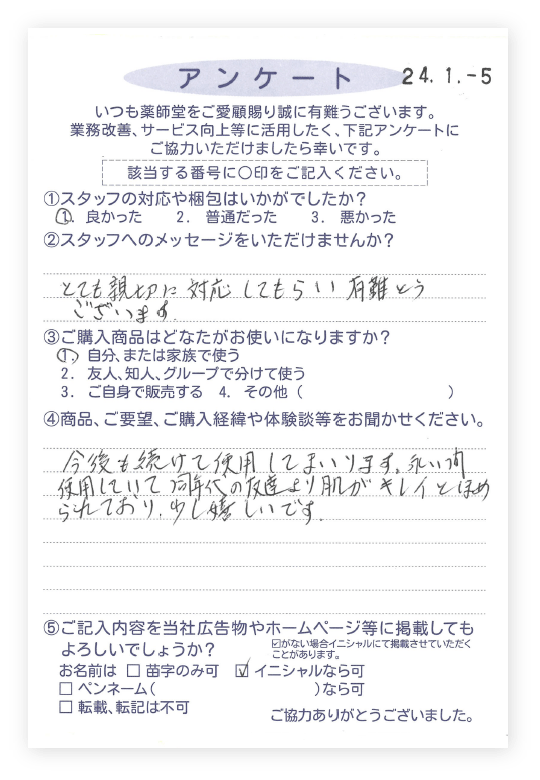 アンケート
24.1.-5
いつも薬師堂をご愛顧賜り誠に有難うございます。
業務改善、サービス向上等に活用したく、下記アンケートに
ご協力いただけましたら幸いです。
該当する番号に〇印をご記入ください。
①スタッフの対応や梱包はいかがでしたか？
1. 良かった 2. 普通だった 3. 悪かった
②スタッフへのメッセージをいただけませんか？
とても親切に対応してもらい有難とう
ございます。
③ご購入商品はどなたがお使いになりますか？
1. 自分、または家族で使う
2. 友人、知人、グループで分けて使う
3. ご自身で販売する 4. その他（ ）
④商品、ご要望、ご購入経緯や体験談等をお聞かせください。
今後も続けて使用してまいります。永い間
使用していて同年代の友達より肌がキレイとほめ
られており、少し嬉しいです。
⑤ご記入内容を当社広告物やホームページ等に掲載しても
よろしいでしょうか？
☑がない場合イニシャルにて掲載させていただく
ことがあります。
お名前は □ 苗字のみ可 ☑ イニシャルなら可
□ ペンネーム（ ）なら可
□ 転載、転記は不可
ご協力ありがとうございました。